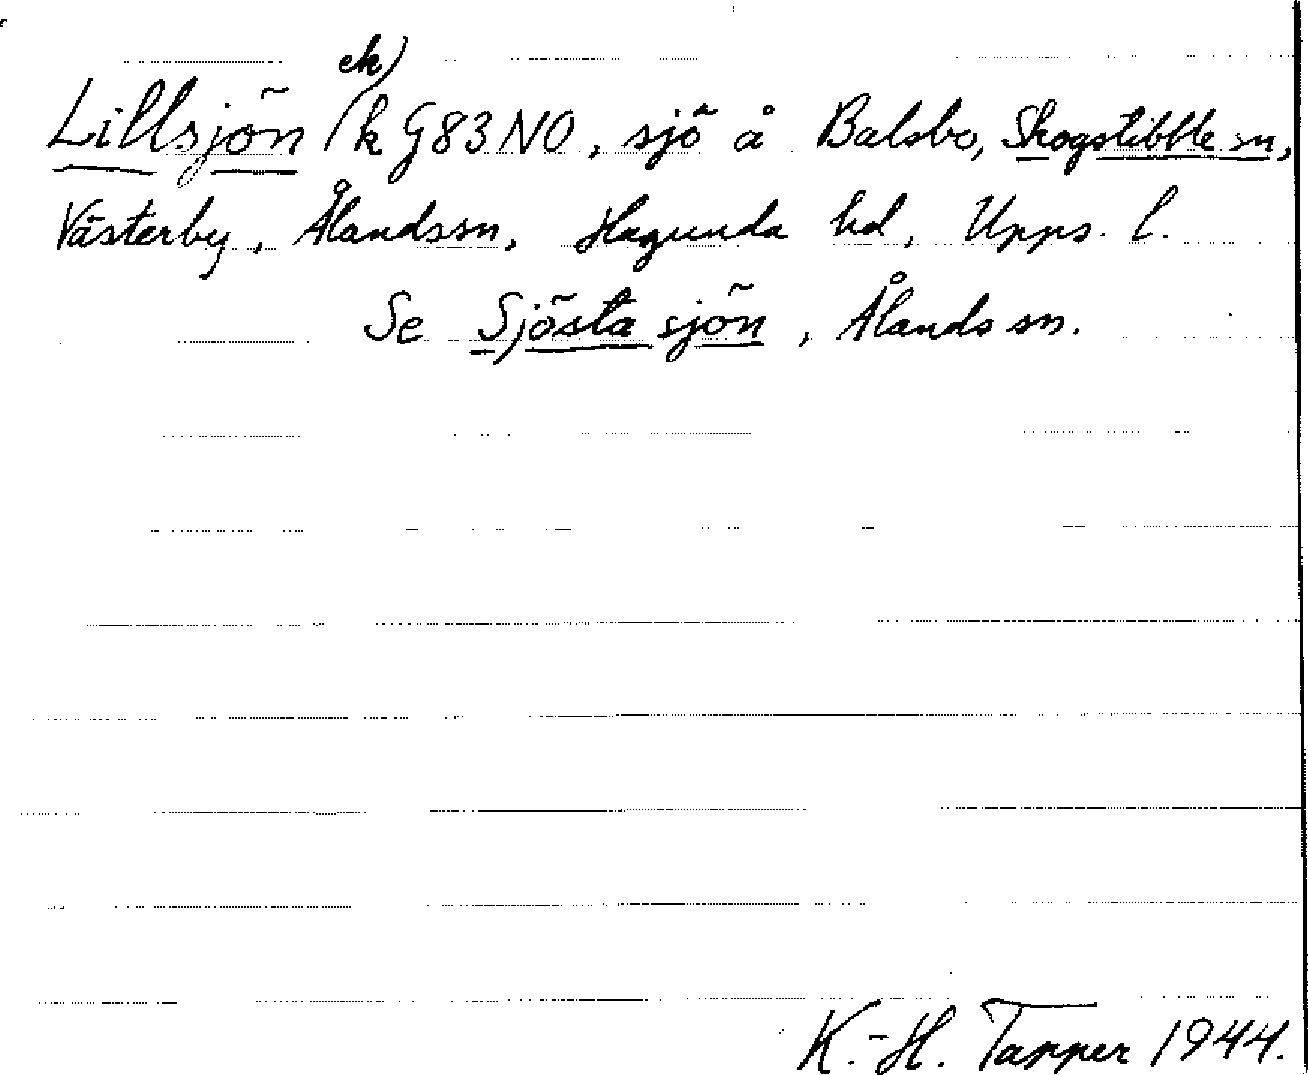 Lillsjön (ek) k G83NO, sjö å Balsbo, Skogstibble sn,
Västerby, Ålandssn, Hagunda hd, Upps. l.
Se Sjösta sjön, Ålands sn.
K.-H. Tapper 1944.